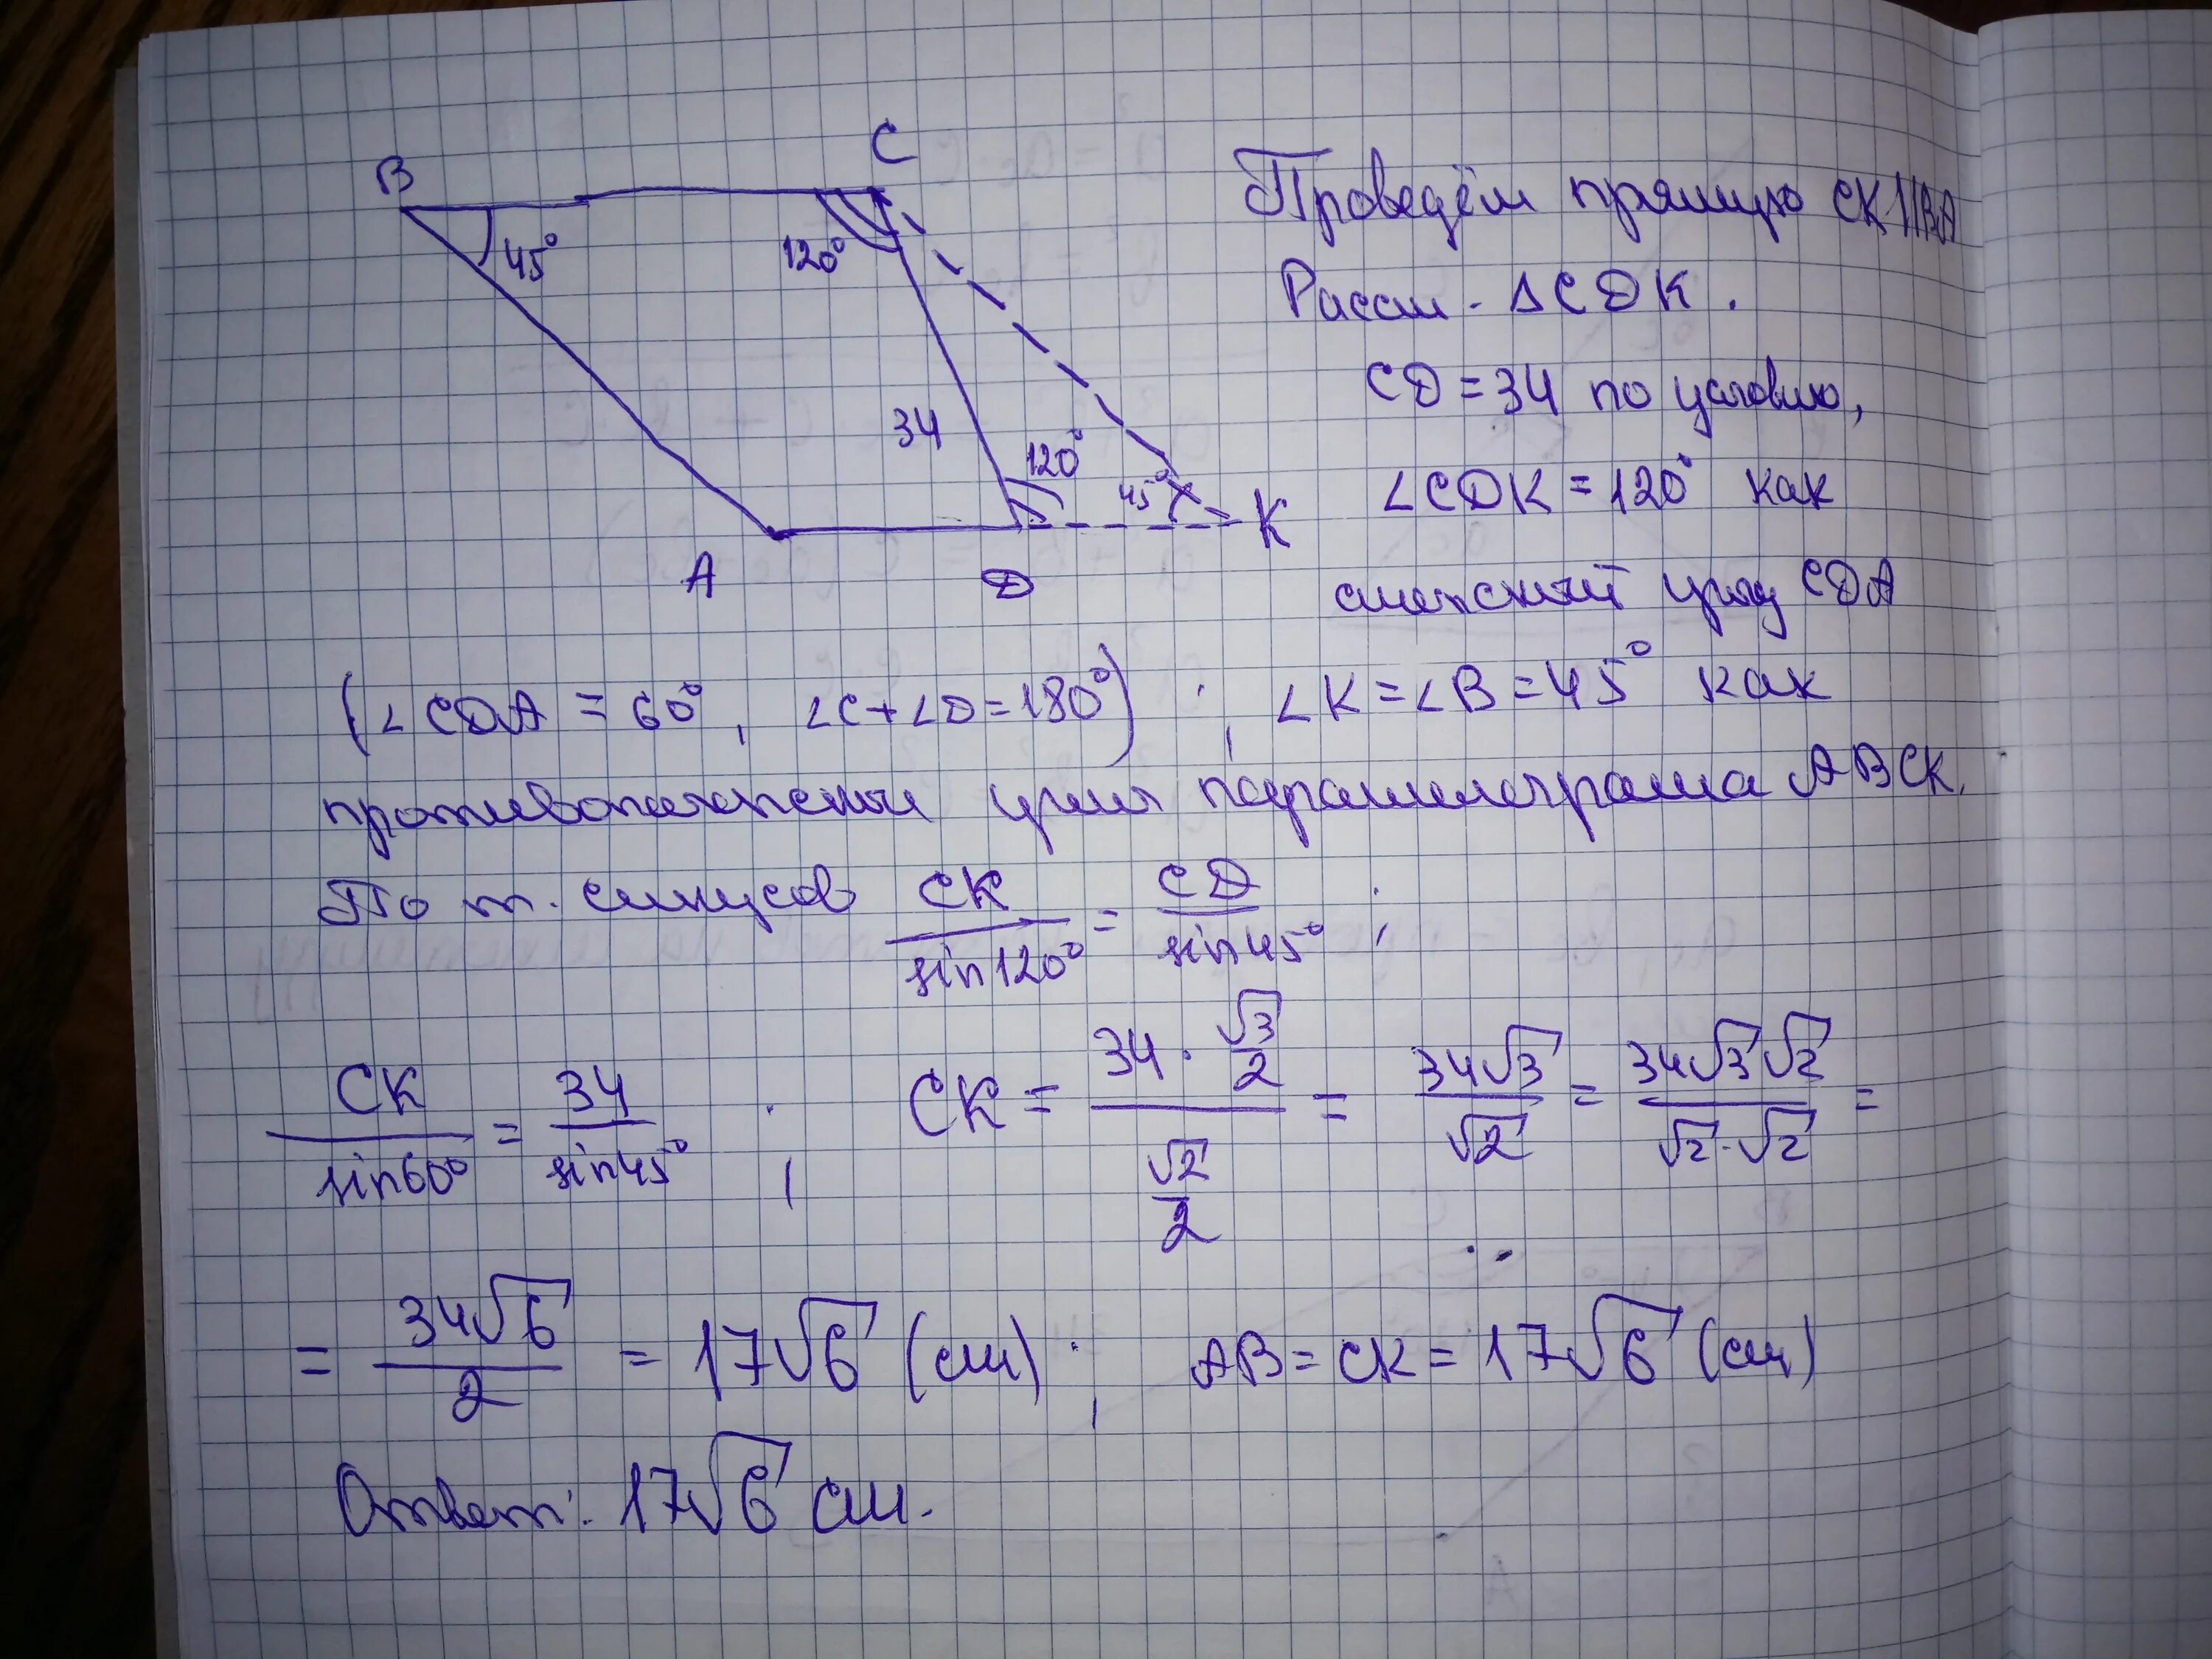 B
C
45°
120°
34
120°
45°
K
A
D
Проведём прямую CK || BA
Рассм. ΔCDK.
CD = 34 по условию,
∠CDK = 120° как
смежный углу CDA
(∠CDA = 60°, ∠C + ∠D = 180°) ; ∠K = ∠B = 45° как
противоположные углы параллелограмма ABCK.
По т. синусов CK/sin120° = CD/sin45° ;
CK/sin60° = 34/sin45° ; CK = (34 · √3/2)/(√2/2) = 34√3/√2 = 34√3√2/√2·√2 =
= 34√6/2 = 17√6 (см) ; AB = CK = 17√6 (см)
Ответ: 17√6 см.